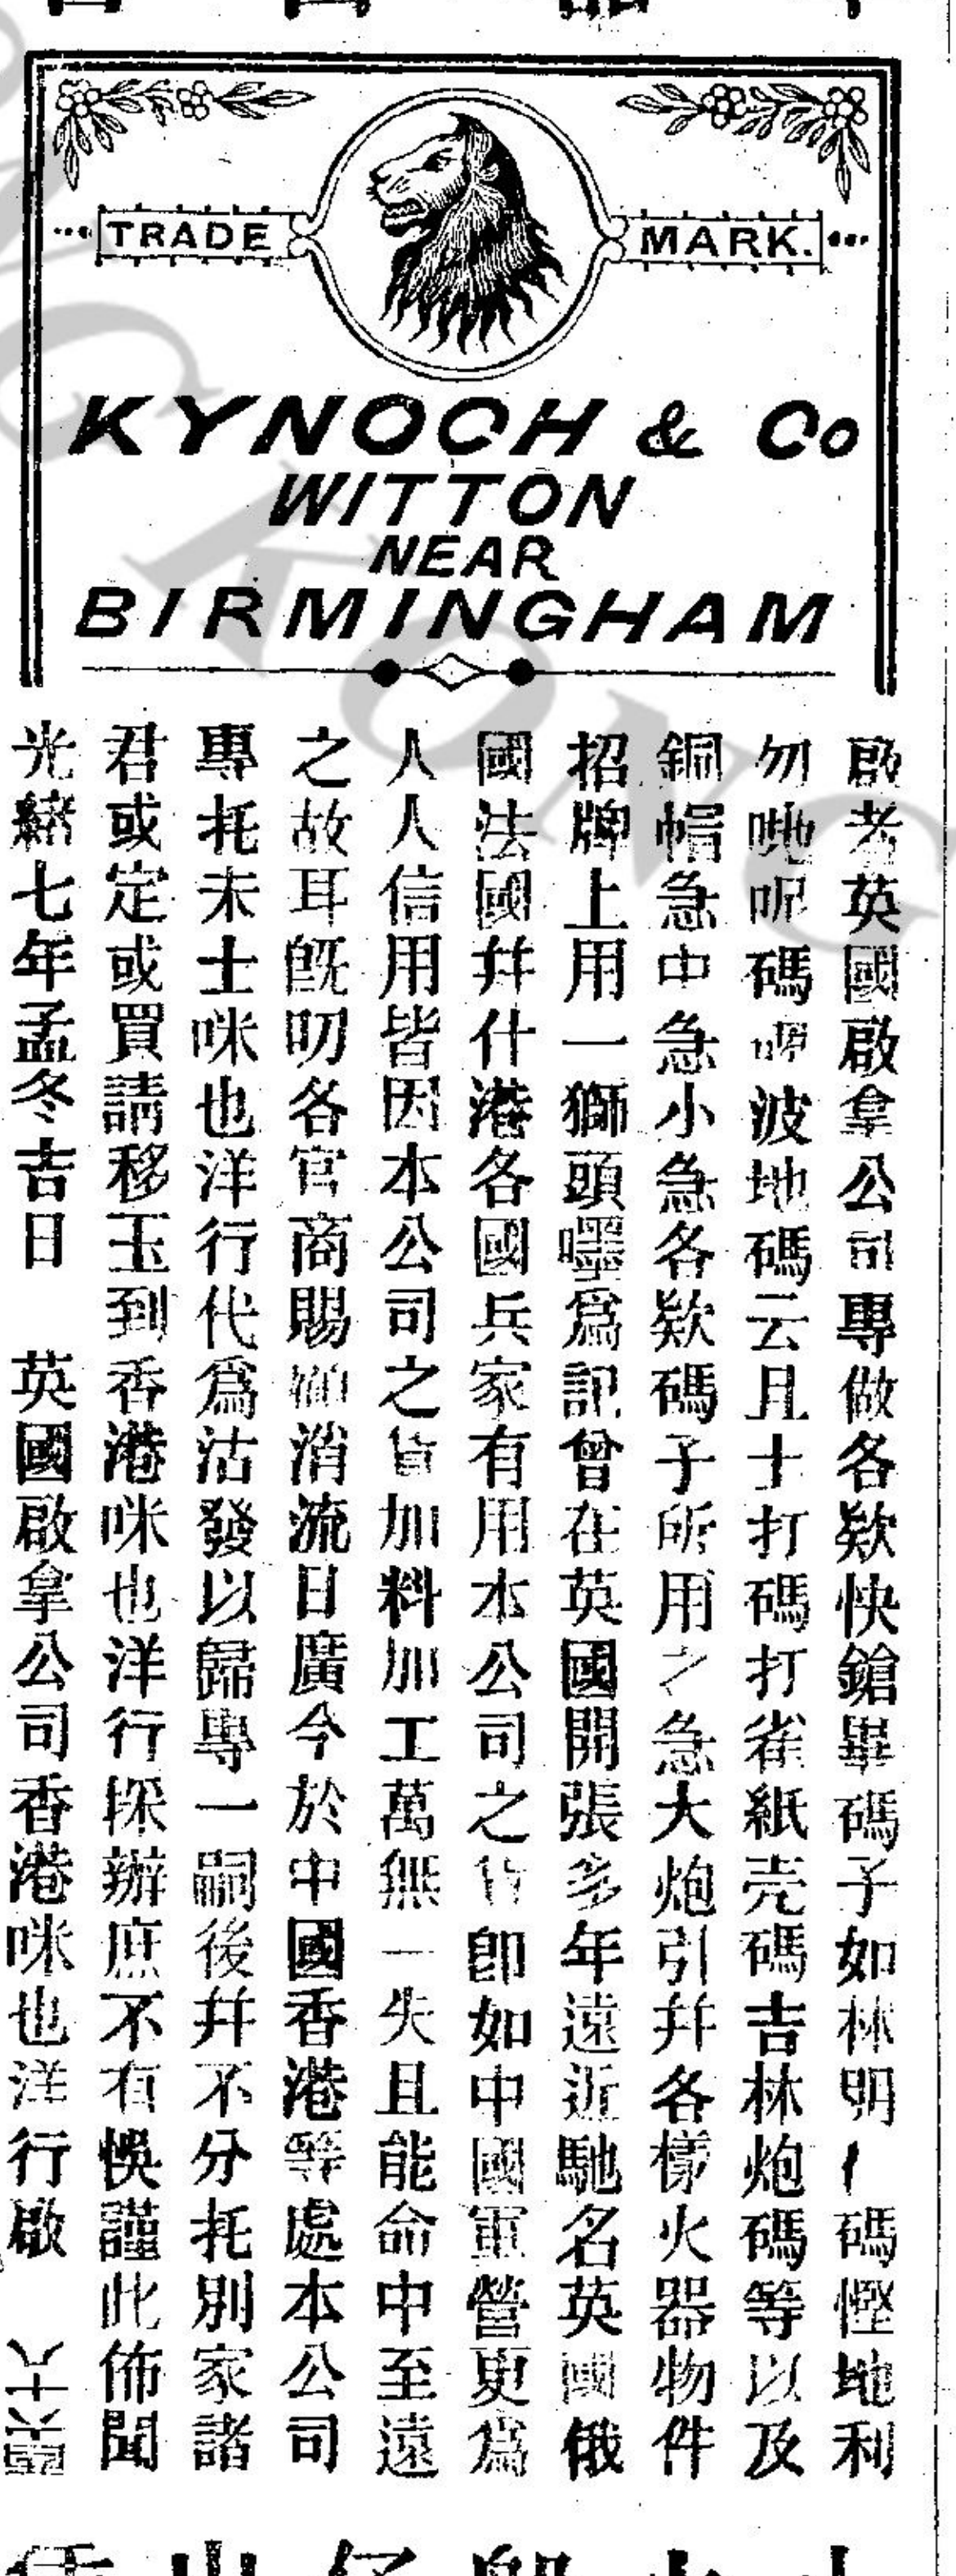 TRADE MARK.
KYNOCH & Co
WITTON
NEAR
BIRMINGHAM
啟者英國啟拿公司專做各欵快鎗畢碼子如林明 碼慳地利
勿哋呢碼 波地碼云且士打碼打雀紙壳碼吉林炮碼等以及
銅帽急中急小急各欵碼子所用之急大炮引幷各樣火器物件
招牌上用一獅頭嘿為記曾在英國開張多年遠近馳名英國俄
國法國幷什港各國兵家有用本公司之貨卽如中國軍營更為
人人信用皆因本公司之貨加料加工萬無一失且能命中至遠
之故耳旣叨各官商賜顧消流日廣今於中國香港等處本公司
專托未士咪也洋行代為沽發以歸專一嗣後幷不分托別家諸
君或定或買請移玉到香港咪也洋行採辦庶不有悞謹此佈聞
光緒七年孟冬吉日 英國啟拿公司香港咪也洋行啟
HONG KONG